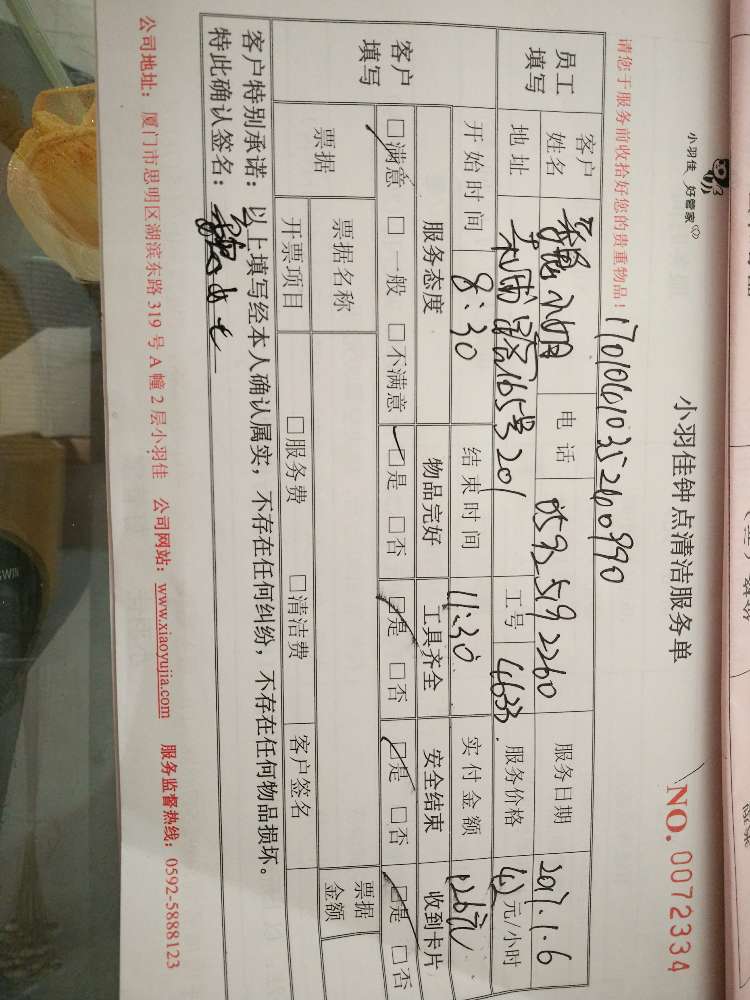 小羽佳 好管家
小羽佳钟点清洁服务单
NO. 0072334
请您于服务前收拾好您的贵重物品!
1701061035260990
员工填写
客户姓名 电话 0592 5192260 服务日期 2017.1.6
地址 165号201 工号 4633 服务价格 42元/小时
开始时间 8:30 结束时间 11:30 实付金额 126元
客户填写
服务态度 物品完好 工具齐全 安全结束 收到卡片
□满意 □一般 □不满意 □是 □否 □是 □否 □是 □否 □是 □否
票据 票据名称 票据金额
开票项目 □服务费 □清洁费 客户签名
客户特别承诺:以上填写经本人确认属实,不存在任何纠纷,不存在任何物品损坏。
特此确认签名:
公司地址:厦门市思明区湖滨东路319号A幢2层小羽佳 公司网站:www.xiaoyujia.com 服务监督热线:0592-5888123